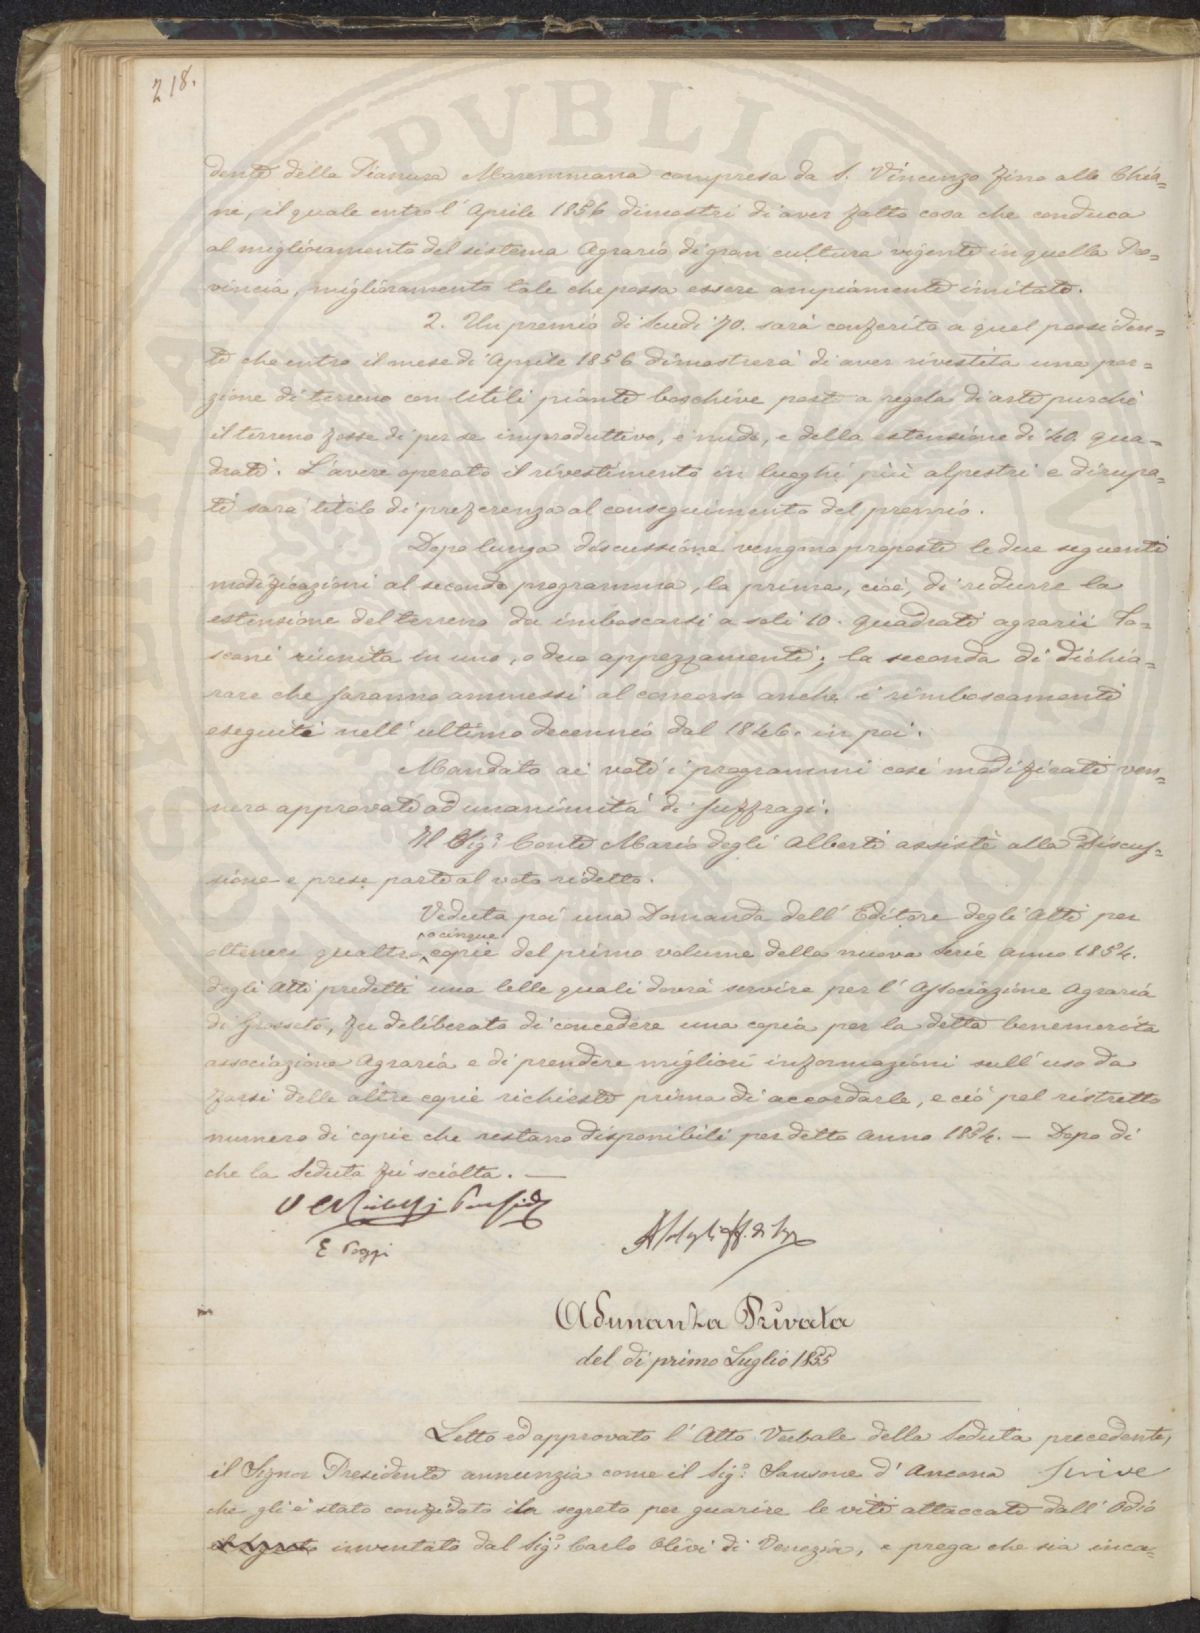 218.
dente della Pianura Maremmana compresa da S. Vincenzo fino alle Chia=
ne, il quale entro l'Aprile 1856 dimostri di aver fatto cosa che conduca
al miglioramento del sistema Agrario di gran cultura vigente in quella Pro=
vincia, miglioramento tale che possa essere ampiamente imitato.
2. Un premio di Scudi 70. sarà conferito a quel possiden=
te che entro il mese di Aprile 1856 dimostrerà di aver rivestita una por=
zione di terreno con utili piante boschive poste a regola d'arte purchè
il terreno fosse di per se improduttivo, e nudo, e della estensione di 40. qua=
drati. L'avere operato il rivestimento in luoghi più alpestri e dirupa=
ti sarà titolo di preferenza al conseguimento del premio.
Dopo lunga discussione vengono proposte le due seguenti
modificazioni al secondo programma, la prima, cioè, di ridurre la
estensione del terreno da imboscarsi a soli 10. quadrati agrarii To=
scani riunita in uno, o due appezzamenti; la seconda di dichia=
rare che saranno ammessi al concorso anche i rimboscamenti
eseguiti nell'ultimo decennio dal 1846. in poi.
Mandato ai voti i programmi così modificati ven=
nero approvati ad unanimità di suffragi.
Il Sig.r Conte Mario degli Alberti assistè alla Discus=
sione e prese parte al voto ridetto.
Veduta poi una Domanda dell'Editore degli Atti per
ottenere quattro o cinque copie del primo volume della nuova Serie Anno 1854.
degli Atti predetti una delle quali dovrà servire per l'Associazione Agraria
di Grosseto, fu deliberato di concedere una copia per la detta benemerita
associazione Agraria e di prendere migliori informazioni sull'uso da
farsi delle altre copie richieste prima di accordarle, e ciò pel ristretto
numero di copie che restano disponibili per detto Anno 1854. — Dopo di
che la Seduta fù sciolta. —
E Poggi
Adunanza Privata
del dì primo Luglio 1855
Letto ed approvato l'Atto Verbale della Seduta precedente,
il Signor Presidente annunzia come il Sig.r Sansone d'Ancona scrive
che gli è stato confidato il segreto per guarire le viti attaccate dall'Oidio
inventato dal Sig.r Carlo Olivi di Venezia, e prega che sia inca=